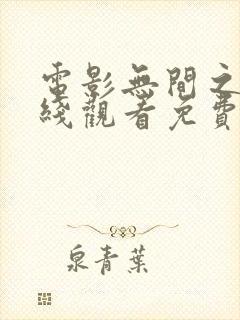 電影無間之
綫觀看免費
泉青葉